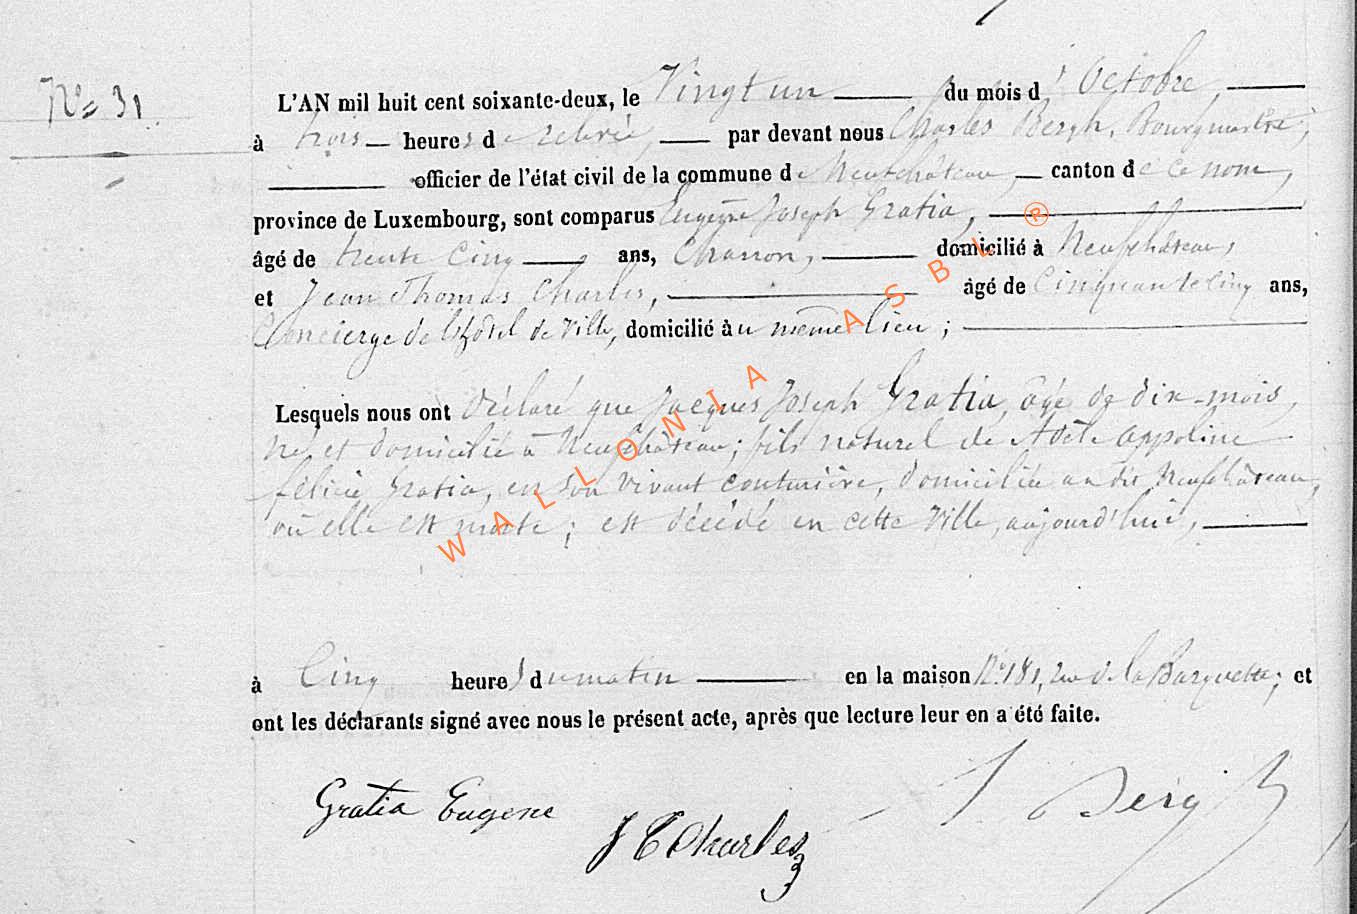 N° 31
L'AN mil huit cent soixante-deux, le Vingt un du mois d' Octobre,
à trois heures de relevée, par devant nous Charles Bergh, Bourgmestre,
officier de l'état civil de la commune de Neufchâteau, canton de ce nom,
province de Luxembourg, sont comparus Eugène Joseph Gratia,
âgé de trente cinq ans, Charron, domicilié à Neufchâteau,
et Jean Thomas Charles, âgé de Cinquante cinq ans,
Concierge de l'hôtel de Ville, domicilié au même lieu ;
Lesquels nous ont déclaré que Jacques Joseph Gratia, âgé de dix-mois,
né et domicilié à Neufchâteau ; fils naturel de Adèle Appoline
félicie Gratia, en son vivant couturière, domiciliée au dit Neufchâteau,
où elle est morte ; est décédé en cette Ville, aujourd'hui,
à Cinq heures du matin en la maison N° 181, rue de la Barquette ; et
ont les déclarants signé avec nous le présent acte, après que lecture leur en a été faite.
Gratia Eugene
J T Charles
Bergh
WALLONIA ASBL ®